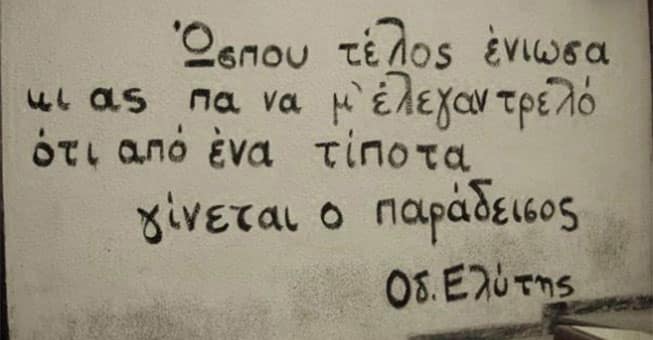 Ὥσπου τέλος ἔνιωσα
κι ας πα να μ' έλεγαν τρελό
ότι από ένα τίποτα
γίνεται ο παράδεισος
Οδ. Ελύτης